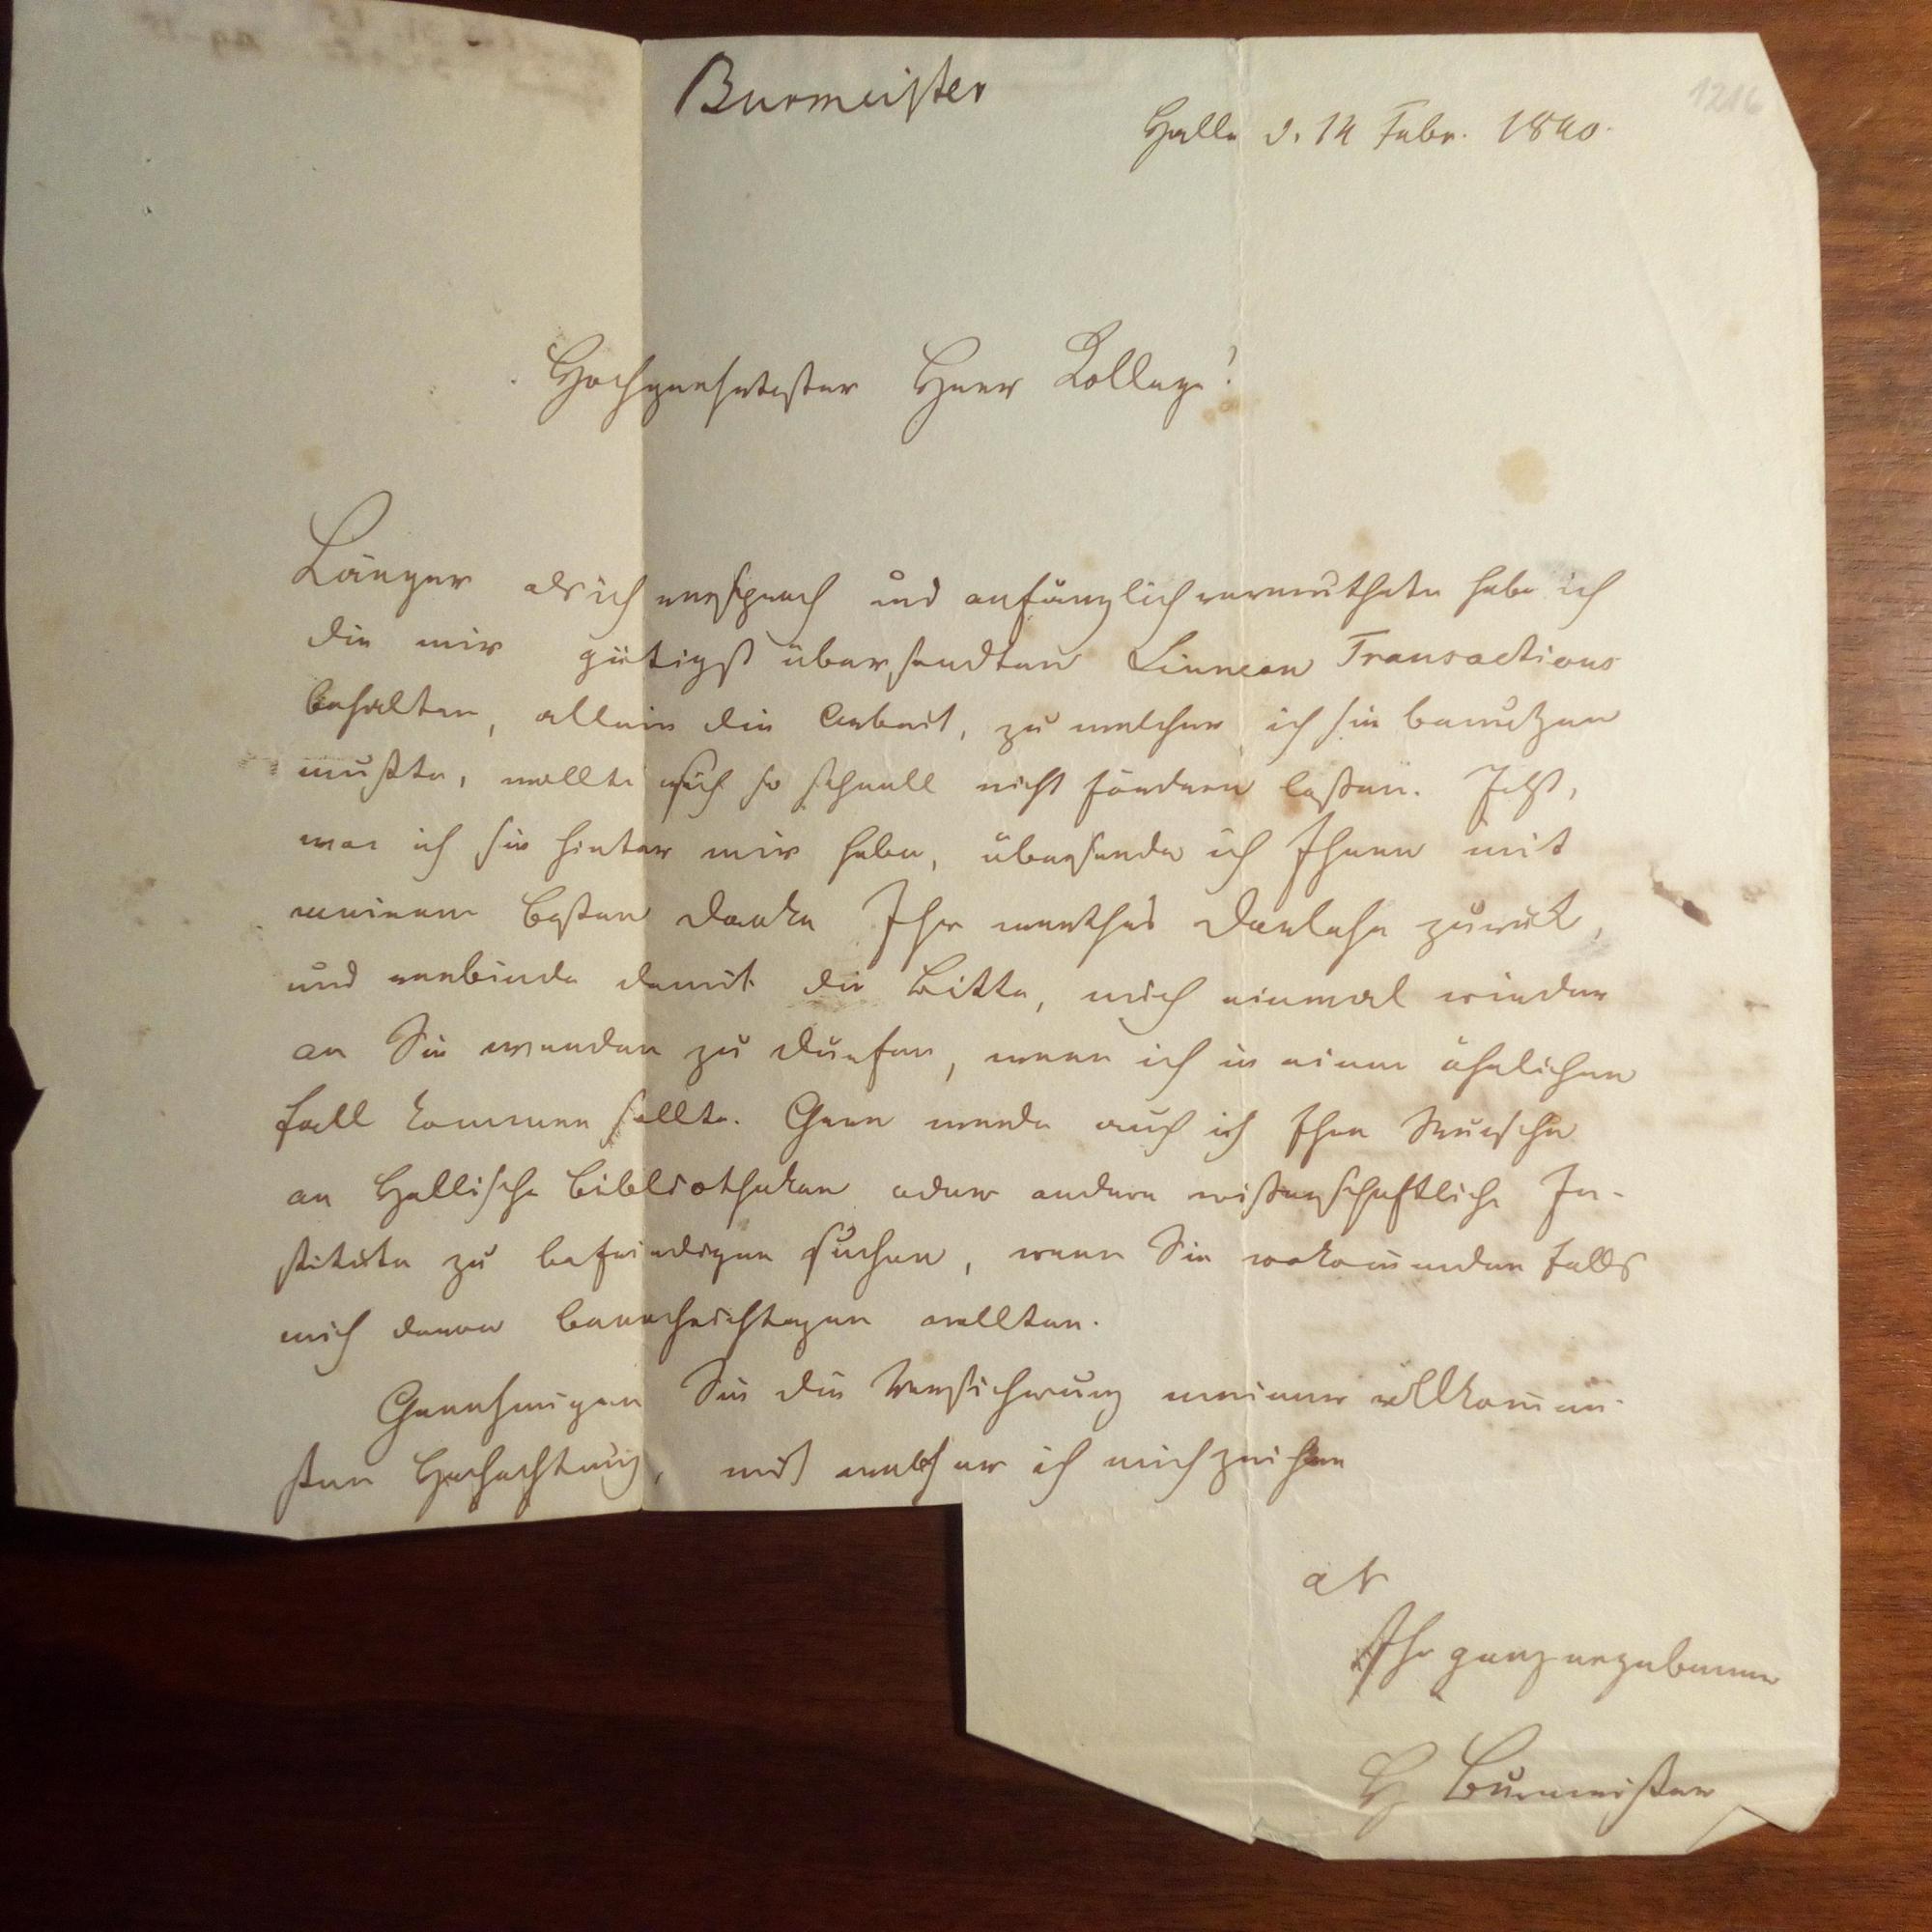 Burmeister
1216
Halle d. 14 Febr. 1840.
Hochgeehrtester Herr College!
Länger als ich versprach und anfänglich vermuthete habe ich
die mir gütigst übersandten Linnean Transactions
behalten, allein die Arbeit, zu welcher ich sie benutzen
mußte, wollte sich so schnell nicht fördern laßen. Jetzt,
wo ich sie hinter mir habe, übersende ich Ihnen mit
meinem besten Danke Ihr werthes Darlehn zurück,
und verbinde damit die Bitte, mich einmal wieder
an Sie wenden zu dürfen, wenn ich in einen ähnlichen
Fall kommen sollte. Gern werde auch ich Ihre Wünsche
an Hallische Bibliotheken oder andere wißenschaftliche In-
stitute zu befriedigen suchen, wenn Sie vorkommenden Falls
mich davon benachrichtigen wollten.
Genehmigen Sie die Versicherung meiner vollkommen-
sten Hochachtung, mit welcher ich mich zeichne
als
Ihr ganz ergebener
H Burmeister